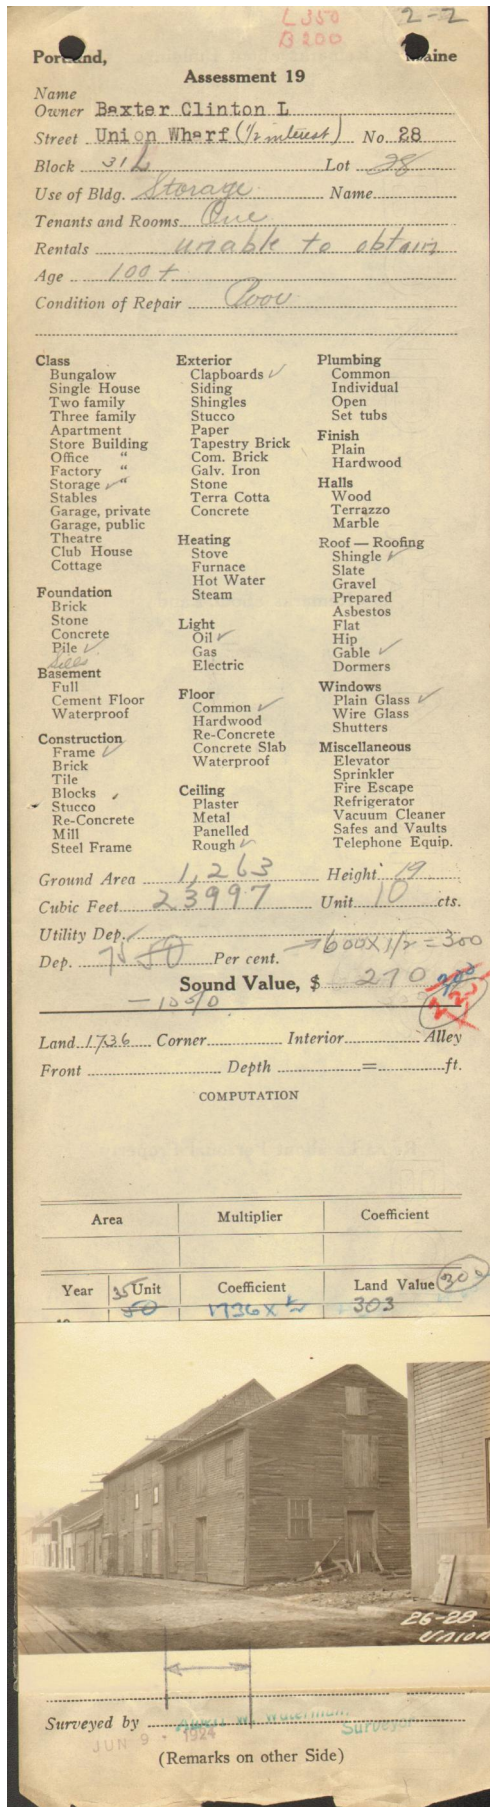 L 350 2-2
B 200
Portland, Maine
Assessment 19
Name
Owner Baxter Clinton L
Street Union Wharf (1/2 interest) No. 28
Block 31 L Lot 28
Use of Bldg. Storage Name
Tenants and Rooms One
Rentals unable to obtain
Age 100+
Condition of Repair Poor
Class
Bungalow
Single House
Two family
Three family
Apartment
Store Building
Office "
Factory "
Storage ✓ "
Stables
Garage, private
Garage, public
Theatre
Club House
Cottage
Foundation
Brick
Stone
Concrete
Pile ✓
Sills
Basement
Full
Cement Floor
Waterproof
Construction
Frame ✓
Brick
Tile
Blocks
Stucco
Re-Concrete
Mill
Steel Frame
Exterior
Clapboards ✓
Siding
Shingles
Stucco
Paper
Tapestry Brick
Com. Brick
Galv. Iron
Stone
Terra Cotta
Concrete
Heating
Stove
Furnace
Hot Water
Steam
Light
Oil ✓
Gas
Electric
Floor
Common ✓
Hardwood
Re-Concrete
Concrete Slab
Waterproof
Ceiling
Plaster
Metal
Panelled
Rough ✓
Plumbing
Common
Individual
Open
Set tubs
Finish
Plain
Hardwood
Halls
Wood
Terrazzo
Marble
Roof — Roofing
Shingle ✓
Slate
Gravel
Prepared
Asbestos
Flat
Hip
Gable ✓
Dormers
Windows
Plain Glass ✓
Wire Glass
Shutters
Miscellaneous
Elevator
Sprinkler
Fire Escape
Refrigerator
Vacuum Cleaner
Safes and Vaults
Telephone Equip.
Ground Area 1,263 Height 19
Cubic Feet 23997 Unit 10 cts.
Utility Dep.
Dep. 75 50 Per cent. → 600 X 1/2 = 300
Sound Value, $ 270
- 10%
Land 1736 Corner Interior Alley
Front Depth = ft.
COMPUTATION
Area Multiplier Coefficient
Year 35 Unit Coefficient Land Value 300
50 1736 X 1/2 303
26-28
Union
Surveyed by Albert W. Waterman
Surveyor
JUN 9 - 1924
(Remarks on other Side)